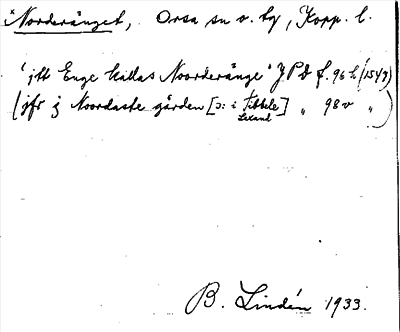 *Norderänget, Orsa sn o. tg, Kopp. l.
"jtt Enge kallas Noorderänge" JPD f. 96 b (1549)
(jfr j Noordaste gården [ɔ: i Tibbele] " 98 v " )
Leksand
B. Lindén 1933.